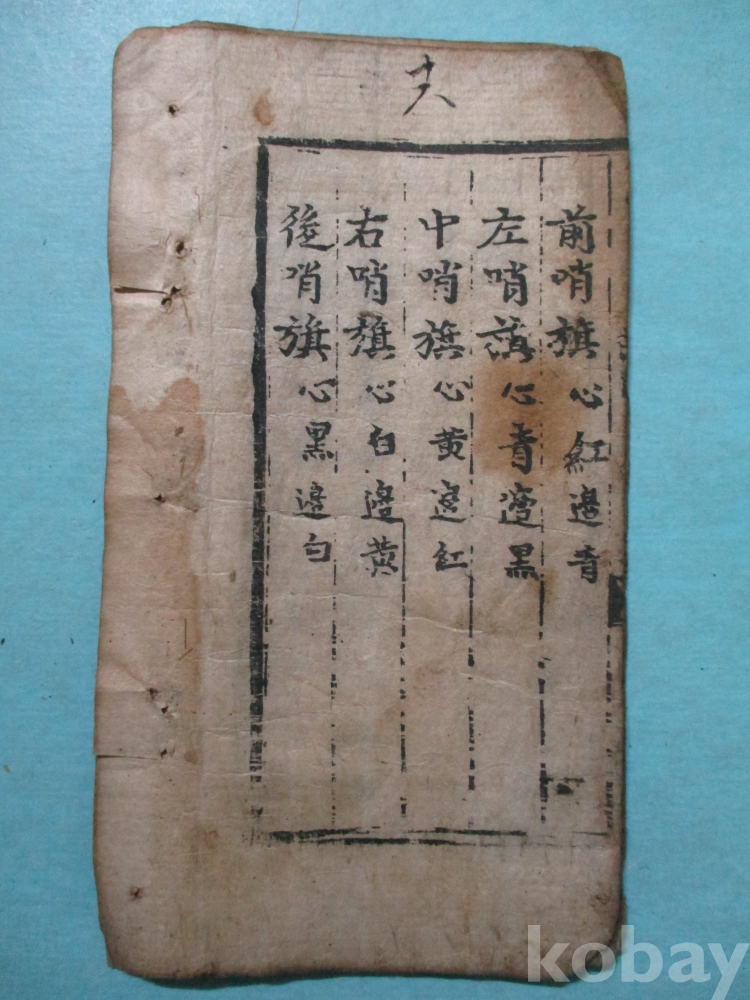 十六
前哨旗心紅邊青
左哨旗心青邊黑
中哨旗心黃邊紅
右哨旗心白邊黃
後哨旗心黑邊白
kobay